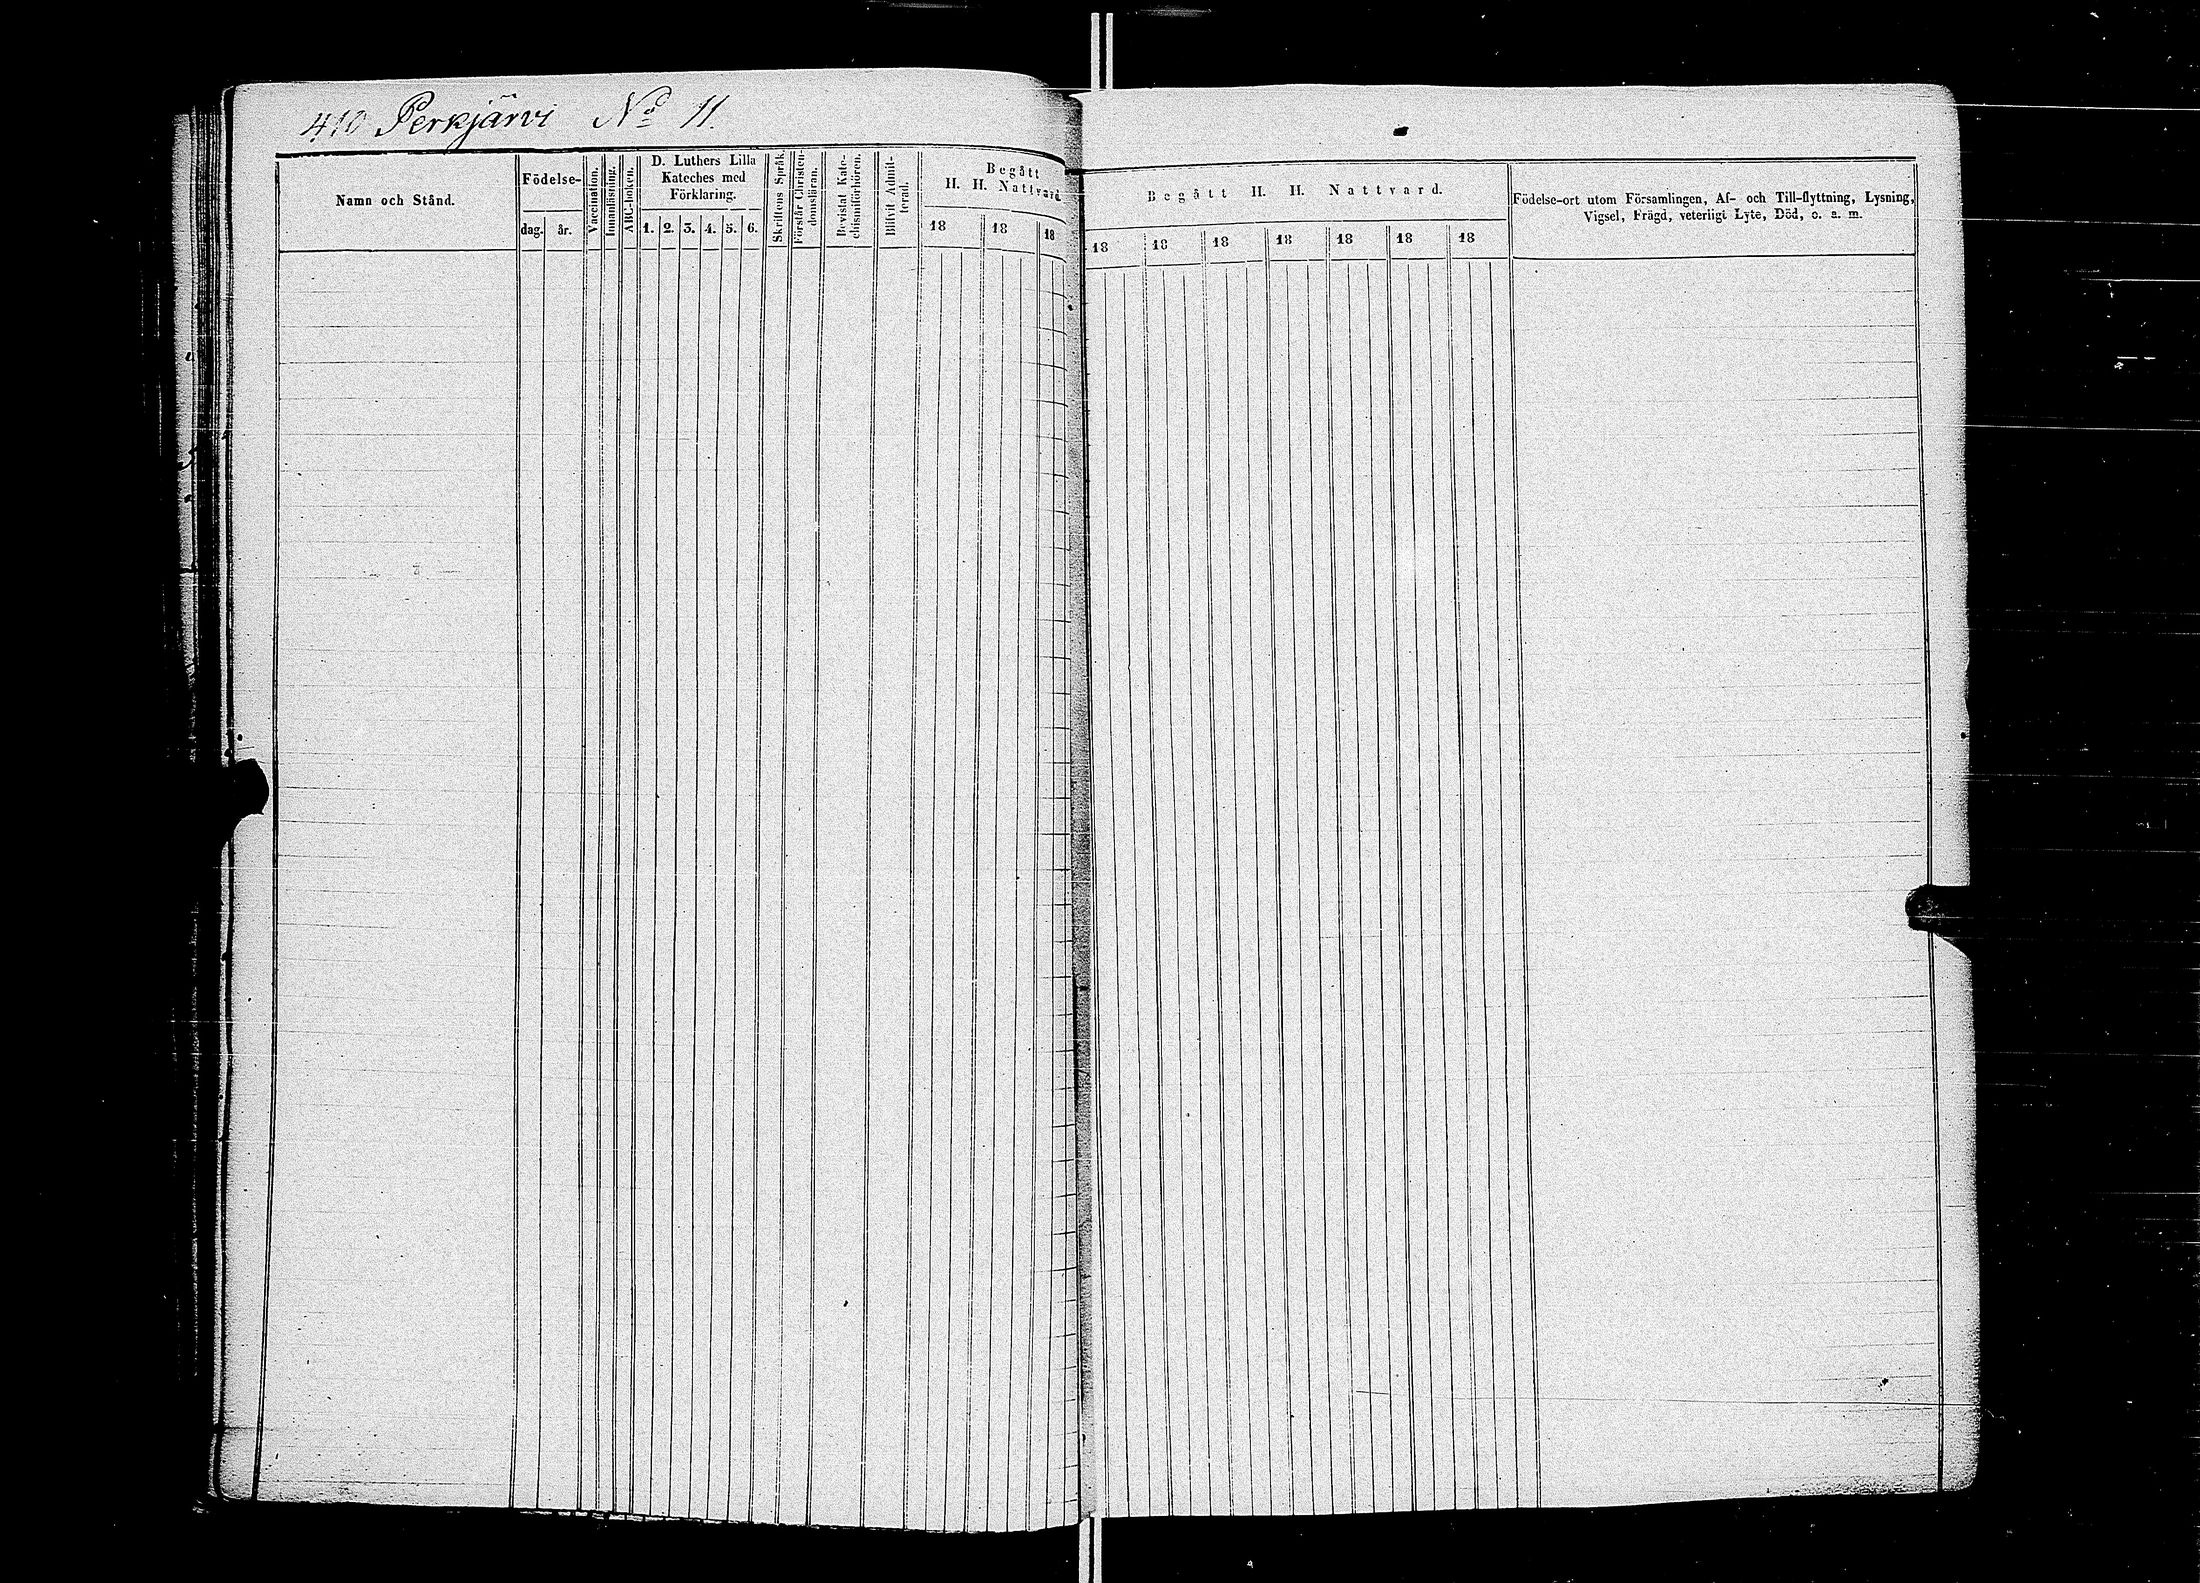 410 Perkjärvi No 11.
Namn och Stånd.
Födelse-
dag. år.
Vaccination.
Innanläsning.
ABC-boken.
D. Luthers Lilla
Kateches med
Förklaring.
1. 2. 3. 4. 5. 6.
Skriftens Språk.
Förstår Christen-
domsläran.
Bevistat Kate-
chismiförhören.
Blifvit Admit-
terad.
Begått
H. H. Nattvard
18 18 18
Begått H. H. Nattvard.
18 18 18 18 18 18 18
Födelse-ort utom Församlingen, Af- och Till-flyttning, Lysning,
Vigsel, Frägd, veterligt Lyte, Död, o. a. m.